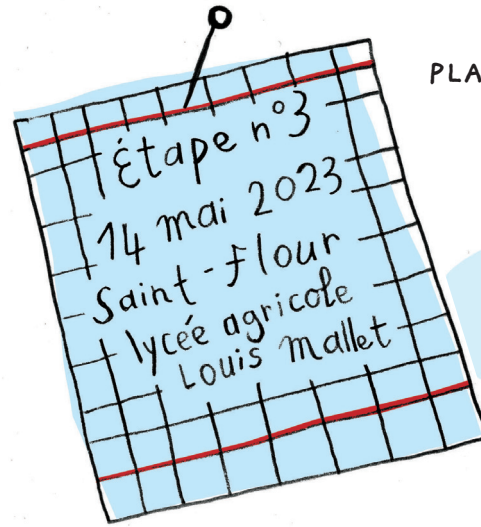 Étape n°3
14 mai 2023
Saint-Flour
lycée agricole
Louis Mallet
PLA